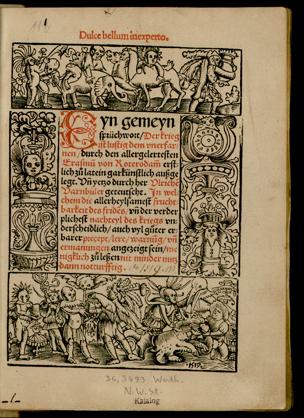 Dulce bellum inexperto.
Eyn gemeyn
sprüchwort / Der krieg
ist lustig dem vnerfar⸗
nen / durch den allergelertesten
Erasmū von Roterodam erst⸗
lich zů latein gar künstlich außge
legt. Vñ yetzo durch hern Vlriche
Varnbüler geteutscht. In wel⸗
chem die allerheylsamest frucht⸗
barkeit des frides, vñ der verder
lichest nachteyl des kriegs vn⸗
derscheidlich / auch vyl gůter er
barer precept / lere / warnūg / vñ
ermanungen angezeigt sein / me
nigklich zů lesen nit minder nutz
dann notturfftig.
36,3493 Werth.
N.W.St.
Katalog